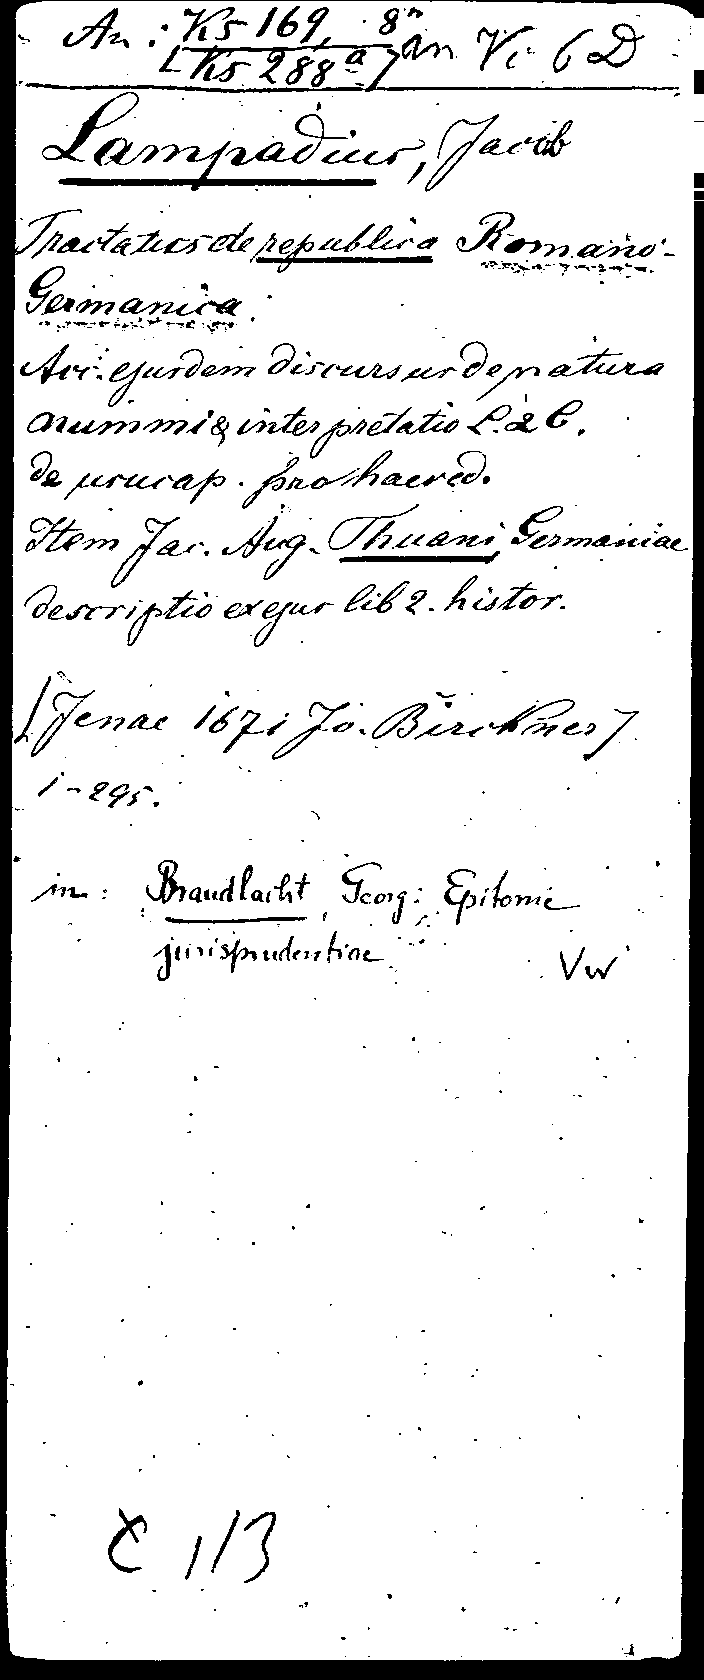 An: Ks 169, 8° an Vi 6 D
[Ks 288a]
Lampadius, Jacob
Tractatus de republica Romano-
Germanica.
Acc. ejusdem discursus de natura
nummi & interpretatio L. 2 C.
de usucap. pro haered.
Item Jac. Aug. Thuani, Germaniae
descriptio ex ejus lib 2. histor.
[Jenae 1671 Jo. Birckner]
1-295.
in: Braudlacht, Georg: Epitome
jurisprudentiae
Vw
C 1/3